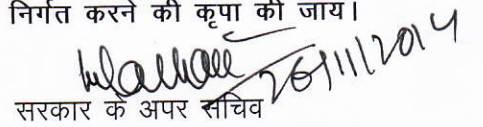 निर्गत करने की कृपा की जाय।
26/11/2014
सरकार के अपर सचिव